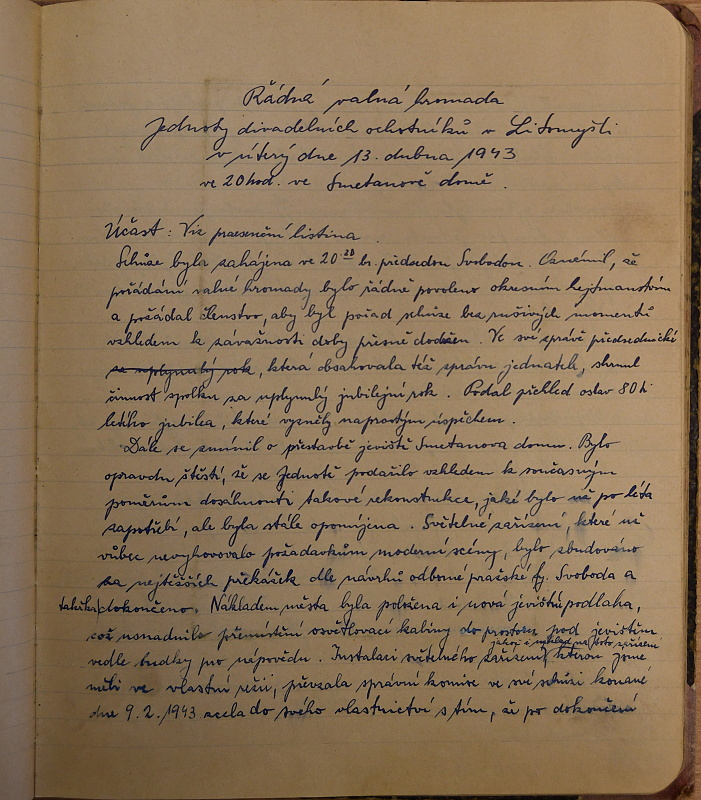 Řádná valná hromada
Jednoty divadelních ochotníků v Litomyšli
v úterý dne 13. dubna 1943
ve 20 hod. ve Smetanově domě.
Účast: Viz praesenční listina.
Schůze byla zahájena ve 20 30 h. předsedou Svobodou. Oznámil, že
pořádání valné hromady bylo řádně povoleno okresním hejtmanstvím
a požádal členstvo, aby byl pořad schůze bez rušivých momentů
vzhledem k závažnosti doby přesně dodržen. Ve své zprávě předsednické
za uplynulý rok, která obsahovala též zprávu jednatele, shrnul
činnost spolku za uplynulý jubilejní rok. Podal přehled oslav 80ti
letého jubilea, které vyzněly naprostým úspěchem.
Dále se zmínil o přestavbě jeviště Smetanova domu. Bylo
opravdu štěstí, že se Jednotě podařilo vzhledem k současným
poměrům dosáhnouti takové rekonstrukce, jaké bylo už po léta
zapotřebí, ale byla stále opomíjena. Světelné zařízení, které už
vůbec nevyhovovalo požadavkům moderní scény, bylo zbudováno
za nejtěžších překážek dle návrhů odborné pražské fy. Svoboda a
takřka dokončeno. Nákladem města byla položena i nová jevištní podlaha,
což usnadnilo přemístění osvětlovací kabiny do prostoru pod jevištěm
vedle budky pro nápovědu. Instalaci světelného zařízení, jakož i náklad na toto zařízení kterou jsme
měli ve vlastní režii, převzala správní komise ve své schůzi konané
dne 9.2.1943 zcela do svého vlastnictví s tím, že po dokončení